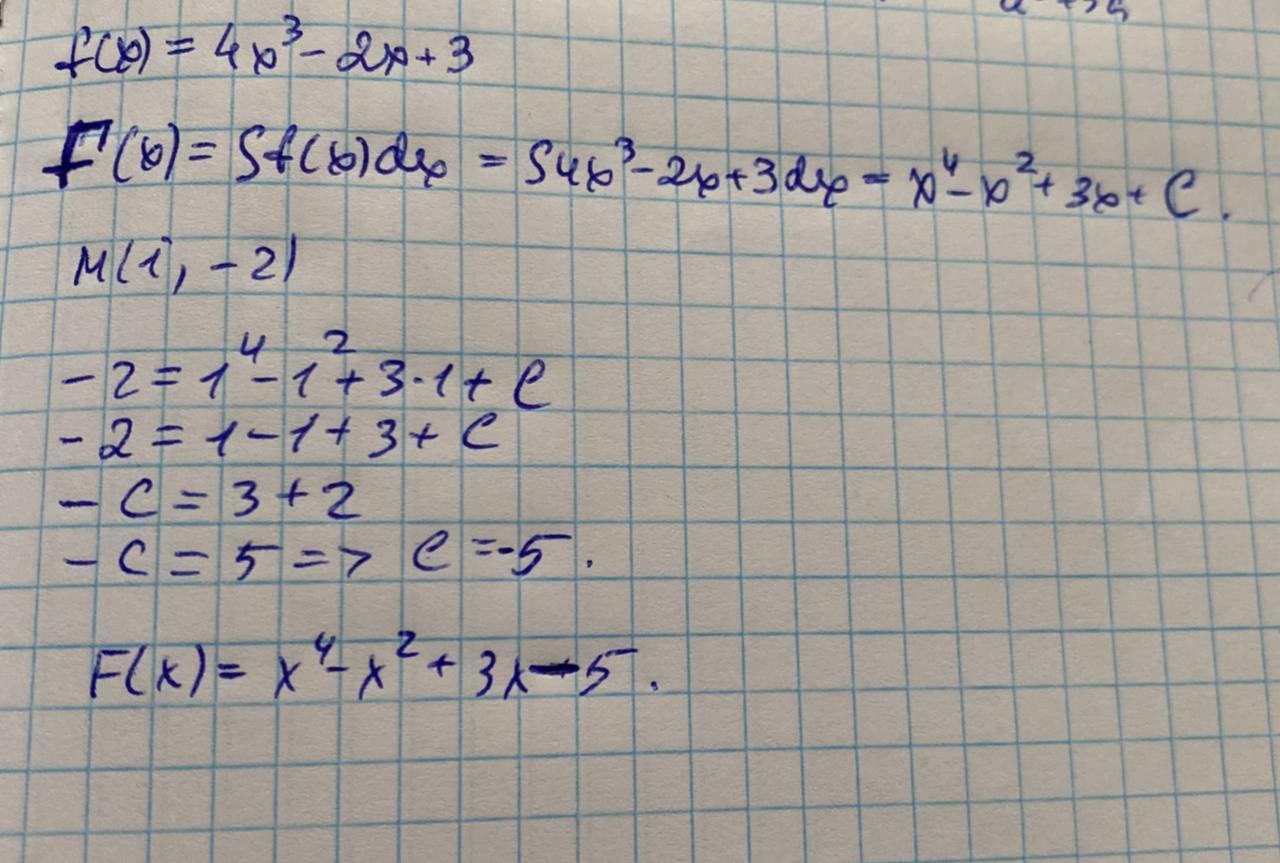 f(x) = 4x³ - 2x + 3
F(x) = ∫f(x)dx = ∫4x³ - 2x + 3dx = x⁴ - x² + 3x + C.
M(1; -2)
-2 = 1⁴ - 1² + 3·1 + C
-2 = 1 - 1 + 3 + C
- C = 3 + 2
- C = 5 => C = -5.
F(x) = x⁴ - x² + 3x - 5.